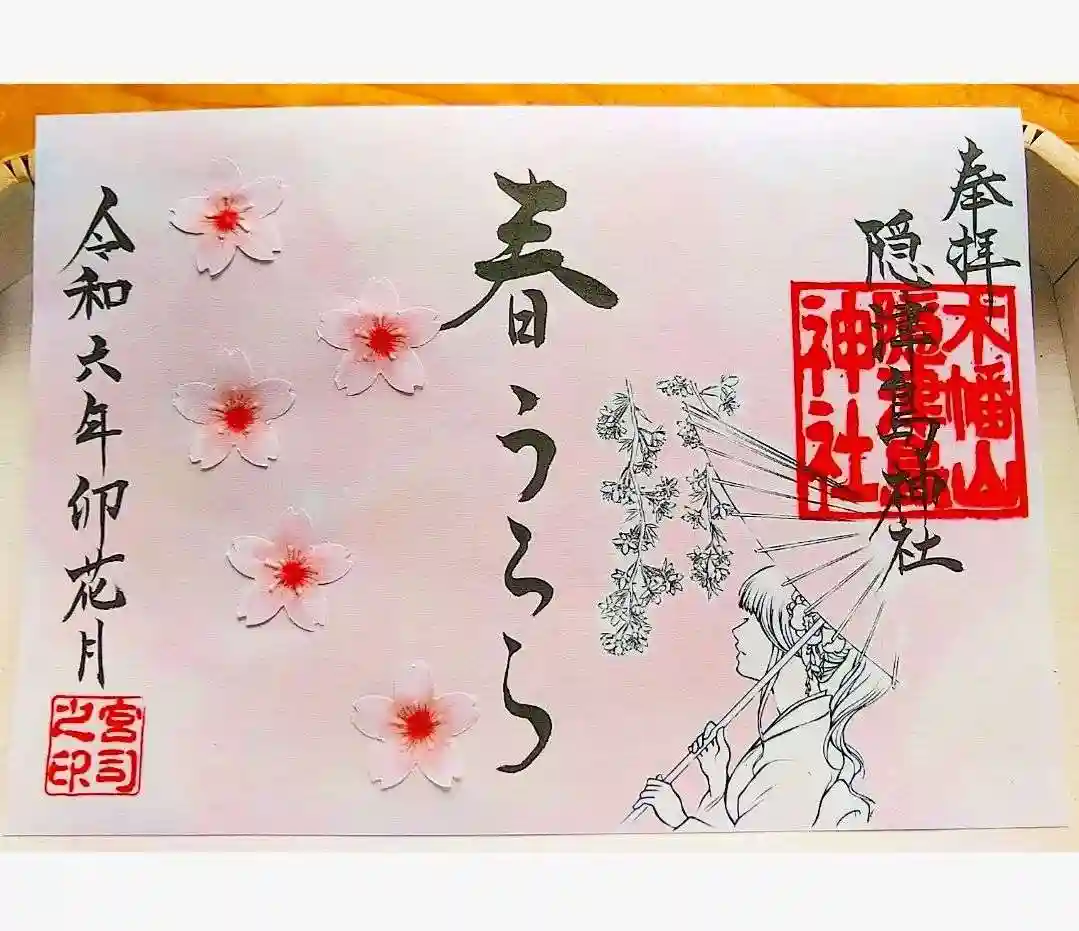 奉拝
隠津島神社
木幡山
隠津島
神社
春うらら
令和六年卯花月
宮司
之印